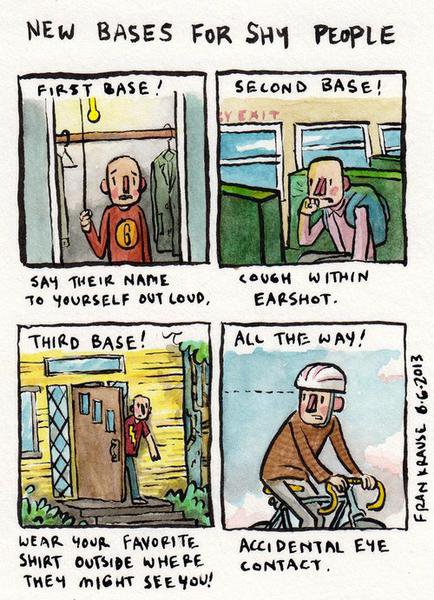 NEW BASES FOR SHY PEOPLE
FIRST BASE!
6
SAY THEIR NAME
TO YOURSELF OUT LOUD.
SECOND BASE!
EXIT
COUGH WITHIN
EARSHOT.
THIRD BASE!
WEAR YOUR FAVORITE
SHIRT OUTSIDE WHERE
THEY MIGHT SEE YOU!
ALL THE WAY!
ACCIDENTAL EYE
CONTACT.
FRAN KRAUSE 6-6-2013